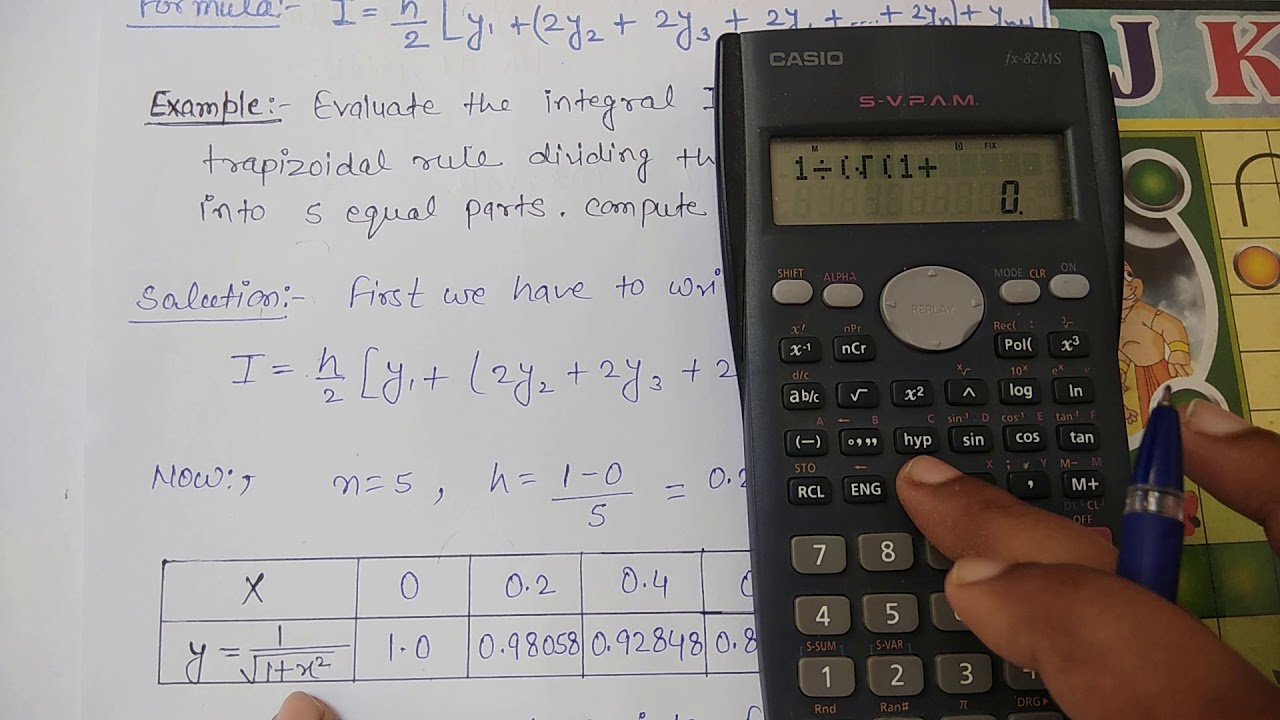 Formula:- I = h/2 [y₁ + (2y₂ + 2y₃ + 2y + .... + 2yₙ) + yₙ₊₁]
Example:- Evaluate the integral I
trapizoidal rule dividing th
into 5 equal parts. compute
Solution:- First we have to wri
I = h/2 [y₁ + (2y₂ + 2y₃ + 2
Now:, n=5, h = 1-0/5 = 0.2
X 0 0.2 0.4
y = 1/√1+x² 1.0 0.98058 0.92848 0.8
CASIO fx-82MS
S-V.P.A.M.
M D FIX
1÷(√(1+
0.
SHIFT ALPHA MODE CLR ON
REPLAY
x! nPr Rec( : ³√
x⁻¹ nCr Pol( x³
d/c ˣ√ 10ˣ eˣ
ab/c √ x² ^ log ln
A ← B C sin⁻¹ D cos⁻¹ E tan⁻¹ F
(−) °,,, hyp sin cos tan
STO ← X ; Y M− M
RCL ENG , M+
DT CL
OFF
7 8
4 5
S-SUM S-VAR
1 2 3
Rnd Ran# π DRG▸
J K